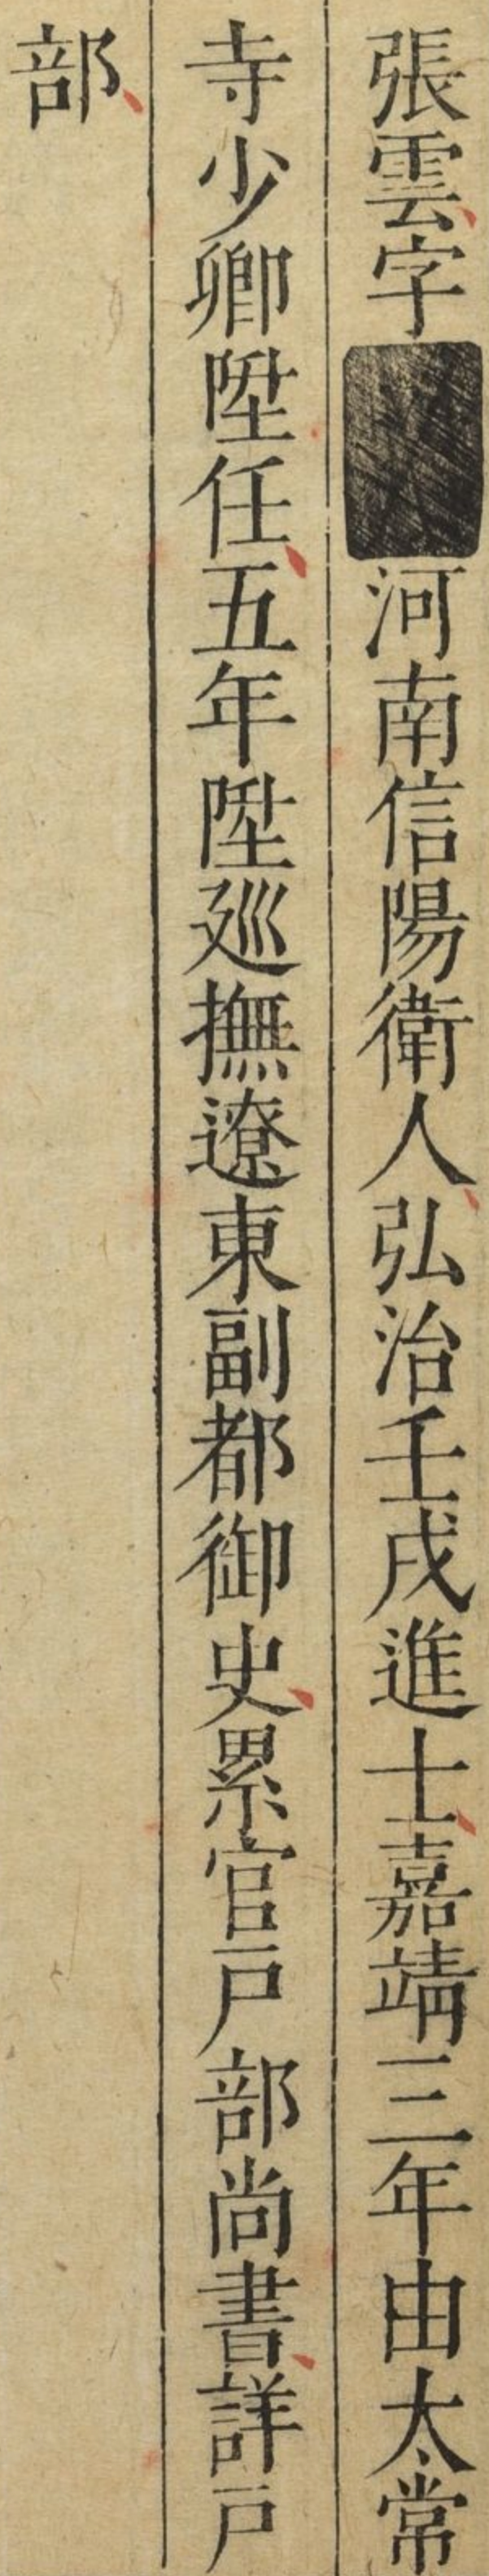 張雲字河南信陽衛人弘治壬戌進士嘉靖三年由太常
寺少卿陞任五年陞廵撫遼東副都御史累官戶部尚書詳戶
部